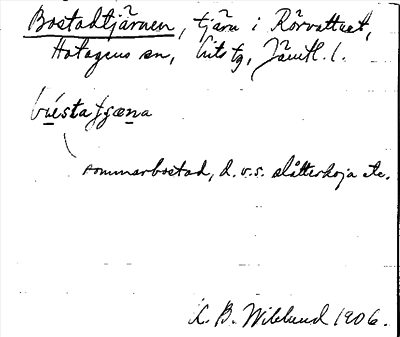 Bostadtjärnen, tjärn i Rörvattnet,
Hotagens sn, Lits tg, Jämtl. l.
buestatjgæna
sommarbostad, d.v.s. slåtterkoja etc.
K. B. Wiklund 1906.